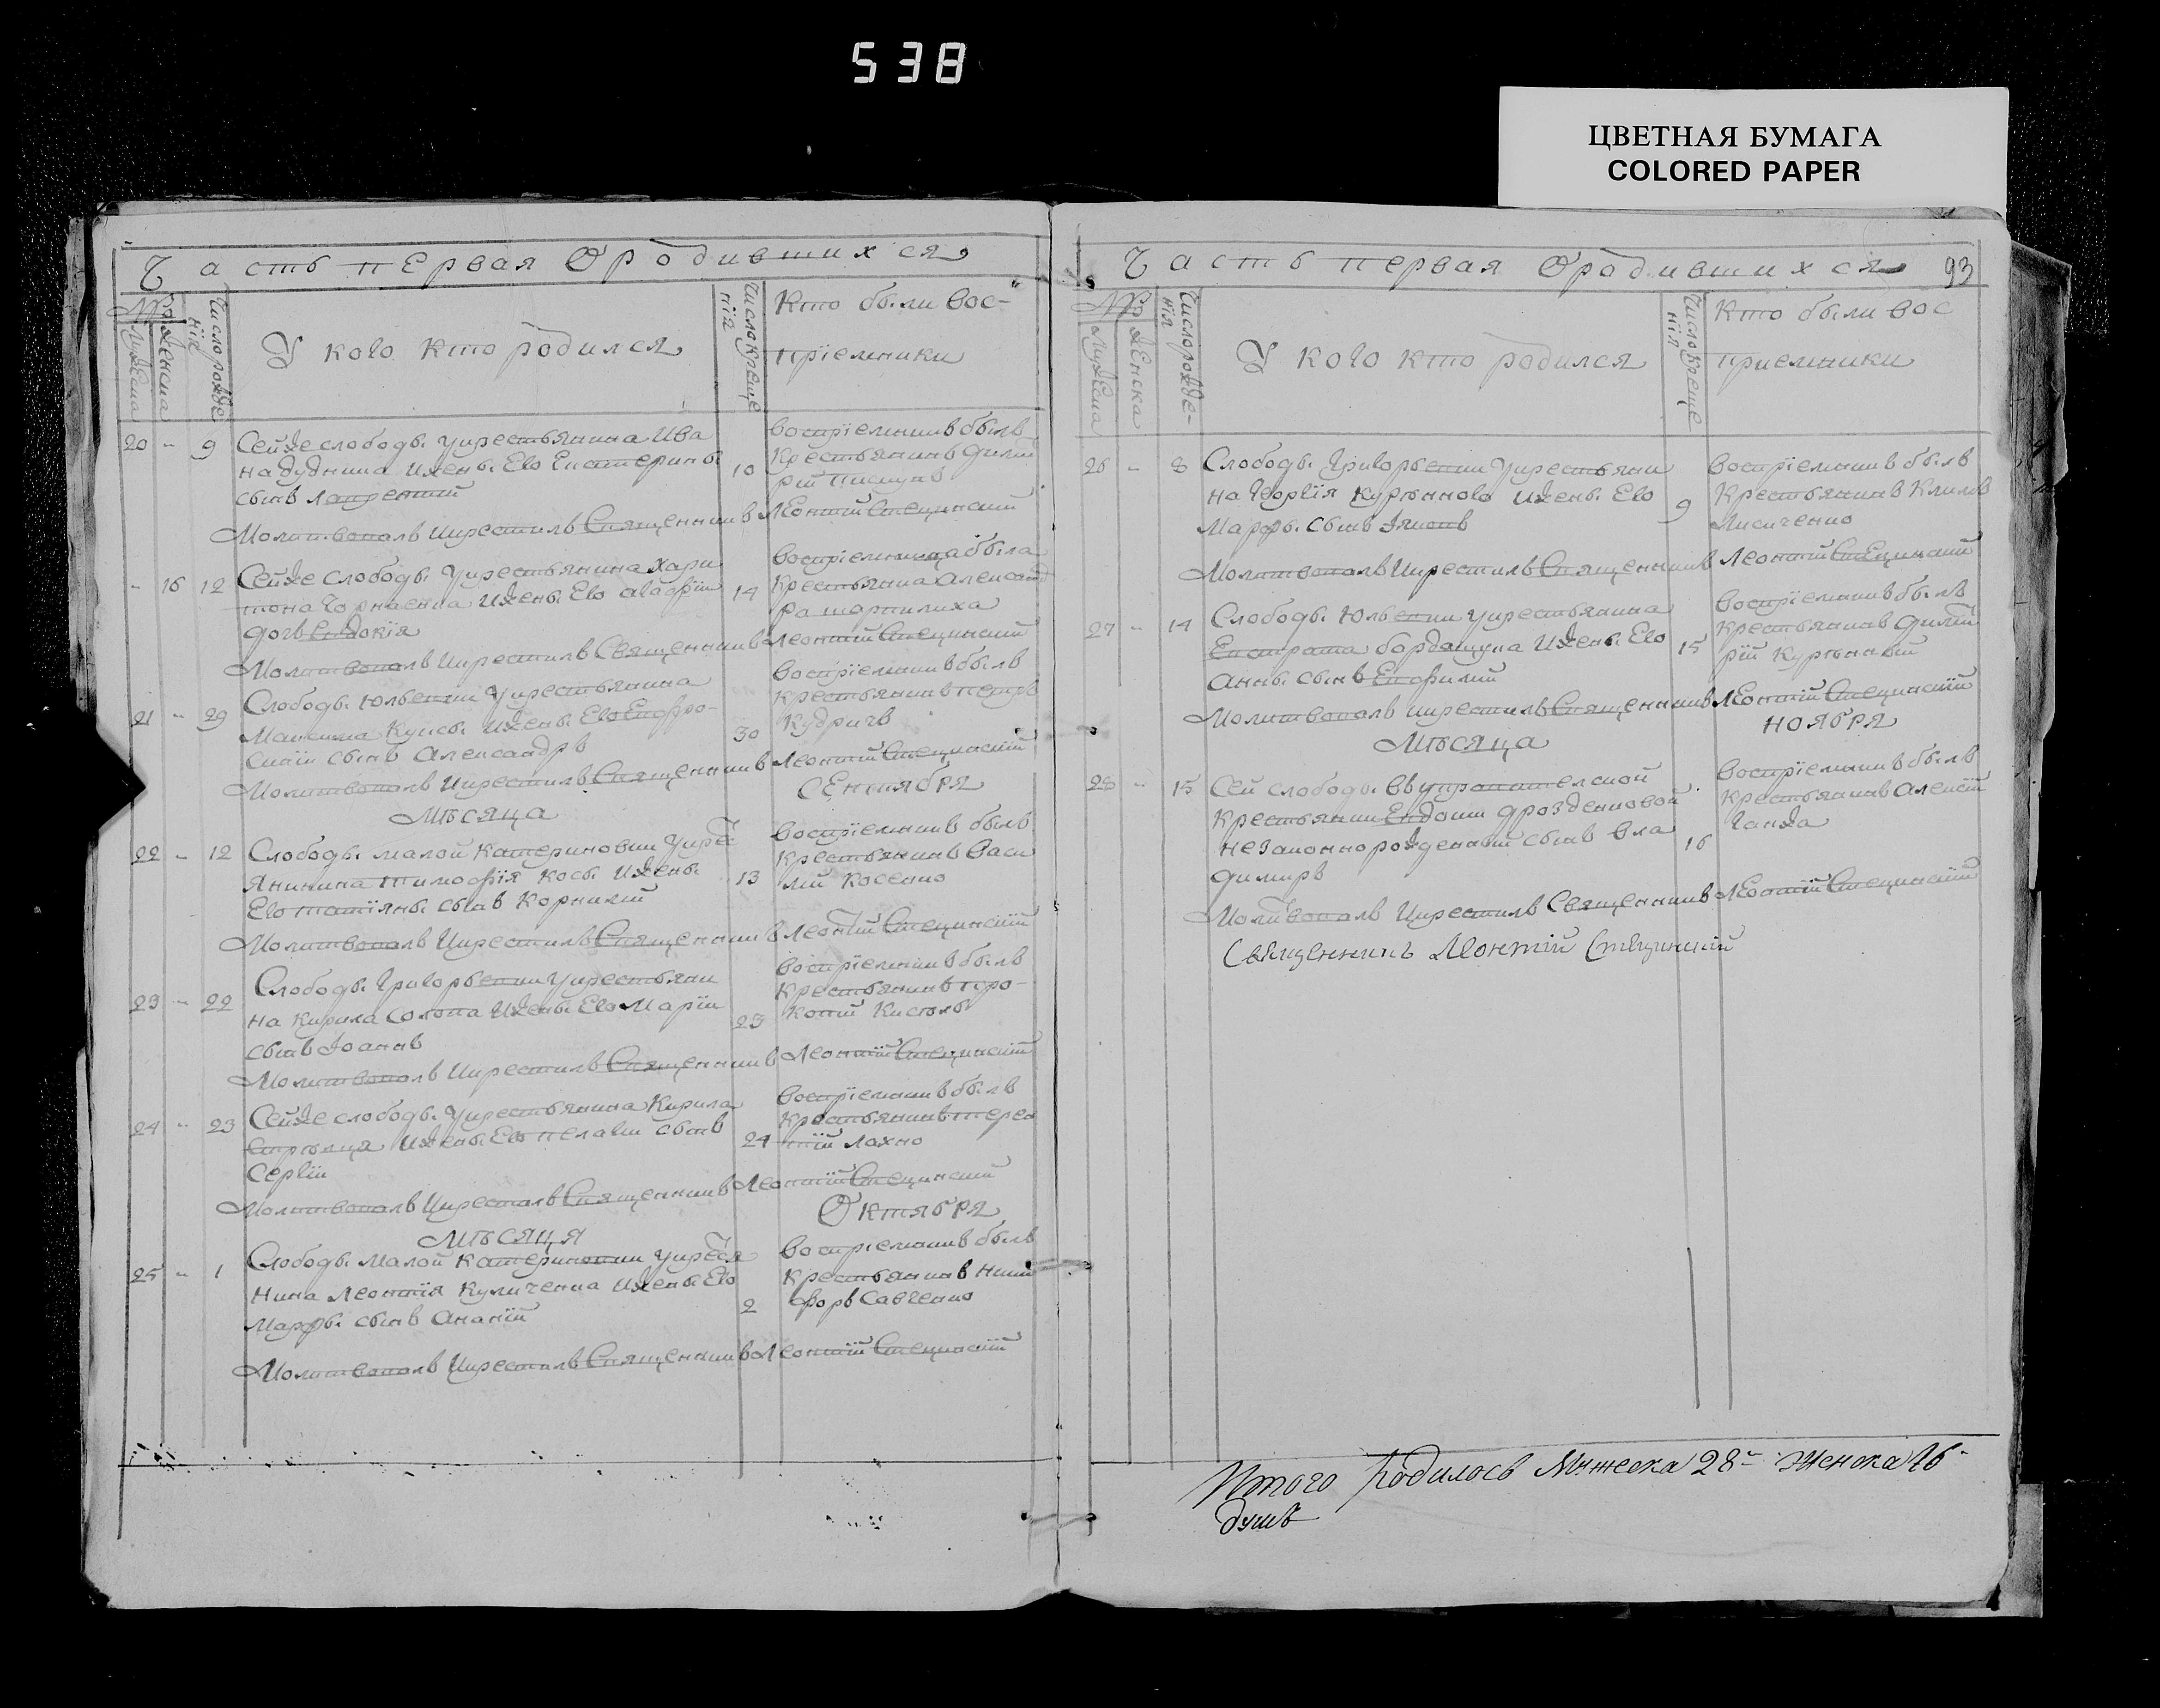 538
ЦВЕТНАЯ БУМАГА
COLORED PAPER
Часть первая О родившихся
№
Мужеска
Женска
Число рожде
нїя
У кого кто родился
Число креще
нїя
Кто были вос-
прїемники
20 - 9 Сейже слободы укрестьянина Ива
на Дудника ижены Его Екатерины
сынъ Лаврентий
10
воспрїемникъ былъ
Крестьянинъ Дмит
рїй
Молитвовалъ икрестилъ Священникъ Леонтїй Стецинский
- 16 12 Сейже слободы укрестьянина Хари
тона Чорнаенка ижены Его Агафїи
дочь Евдокїя
14
воспрїемница была
Крестьянка Александ
ра
Молитвовалъ икрестилъ Священникъ Леонтїй Стецинский
21 - 29 Слободы Юльевки укрестьянина
Максима Куксы ижены Его Евфро-
синїи сынъ Александръ
30
воспрїемникъ былъ
крестьянинъ петръ
Кудричъ
Молитвовалъ икрестилъ Священникъ Леонтїй Стецинскїй
Мѣсяца СЕнтября
22 - 12 Слободы малой Катериновки укрест
янинина тимофїя Косы ижены
Его татїяны сынъ Корнилїй
13
воспрїемникъ былъ
крестьянинъ Васи
лїй Косенко
Молитвовалъ икрестилъ Священникъ Леонтїй Стецинскїй
23 - 22 Слободы Григорьевки укрестьяни
на Кирила Солопа ижены Его Марїи
сынъ Іоаннъ
23
воспрїемникъ былъ
крестьянинъ про-
копїй
Молитвовалъ икрестилъ Священникъ Леонтїй Стецинскїй
24 - 23 Сейже слободы укрестьянина Кирила
ижены Его пелагїи сынъ
Сергїй
24
воспрїемникъ былъ
крестьянинъ терен
тїй Лохно
Молитвовалъ икрестилъ Священникъ Леонтїй Стецинский
Мѣсяця Октября
25 - 1 Слободы Малой Катериновки укрестя
нина Леонтїя Куличенка ижены Его
Марфы сынъ Ананїй
2
воспрїемникъ былъ
крестьянинъ Ники
форъ Савченко
Молитвовалъ икрестилъ Священникъ Леонтїй Стецинскїй
Часть первая О родившихся 93
№
Мужеска
Женска
Число рожде-
нїя
У кого кто родился
Число креще
нїя
Кто были вос
приемники
26 - 8 Слободы Григорьевки укрестьяни
на Георгїя Курѣнного ижены Его
Марфы сынъ Іяковъ
9
воспрїемникъ былъ
Крестьянинъ Климъ
Лисиченко
Молитвовалъ икрестилъ Священникъ Леонтїй Стецинский
27 - 14 Слободы Юльевки укрестьянина
Евстрата ижены Его
Анны сынъ Евфимїй
15
воспрїемникъ былъ
Крестьянинъ Димит
рїй Курѣнный
Молитвовалъ икрестилъ Священникъ Леонтїй Стецинскїй
Мѣсяца ноября
28 - 15 Сей слободы
крестьянки Евдокии Дрозденковой
незаконнорожденный сынъ Вла
димиръ
16
воспрїемникъ былъ
крестьянинъ Алексїй
Ганжа
Молитвовалъ икрестилъ Священникъ Леонтїй Стецинскїй
Священникъ Леонтїй Стецинский
Итого родилось Мужеска 28 - Женска 16 -
душъ